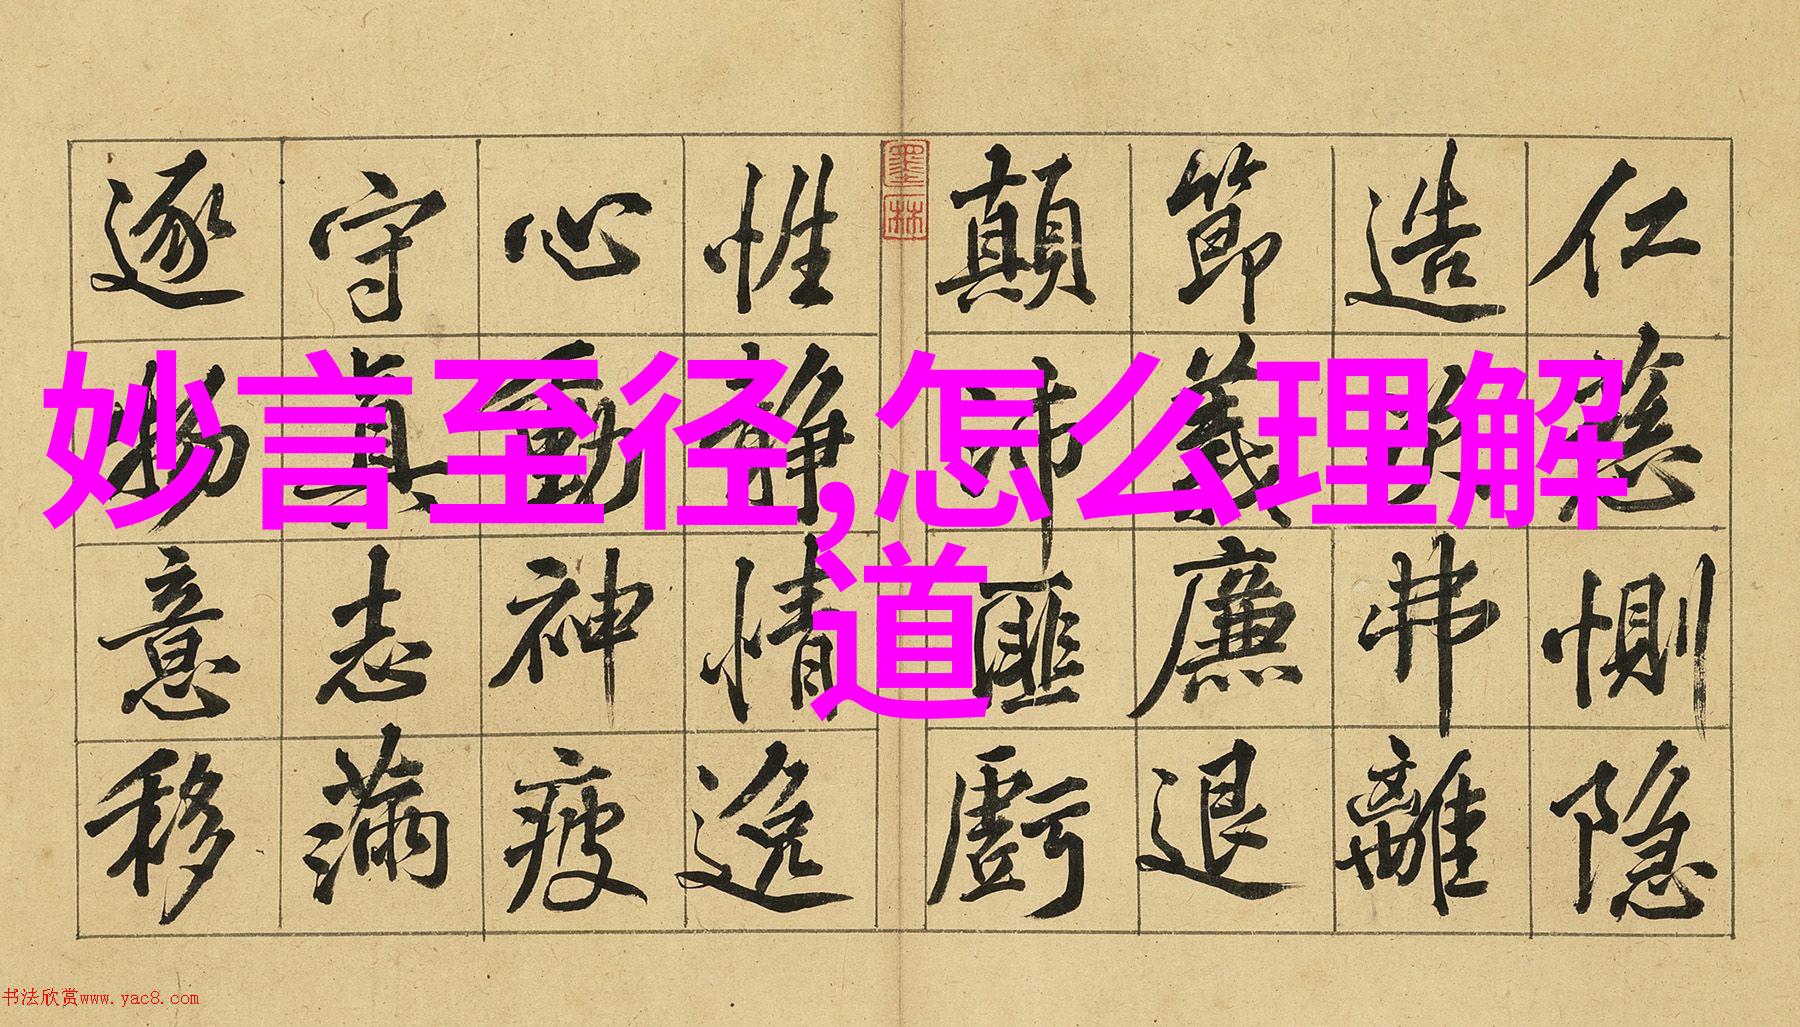 妙言至径,怎么理解
道
仁慈惻隐
造次弗離
節義廉退
顛沛匪虧
性静情逸
心動神疲
守真志滿
逐物意移
墨林
书法欣赏www.yac8.com